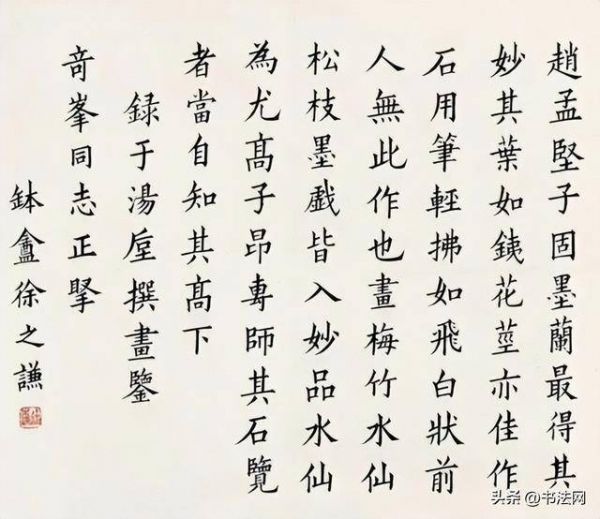 趙孟堅子固墨蘭最得其
妙其葉如銕花莖亦佳作
石用筆輕拂如飛白狀前
人無此作也畫梅竹水仙
松枝墨戲皆入妙品水仙
為尤髙子昂專師其石覽
者當自知其髙下
録于湯垕撰畫鑒
竒峯同志正擥
鉢盦徐之謙
头条@书法网